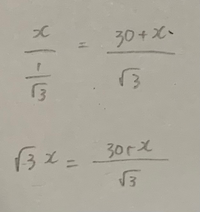 x / (1/√3) = (30+x) / √3
√3 x = (30+x) / √3